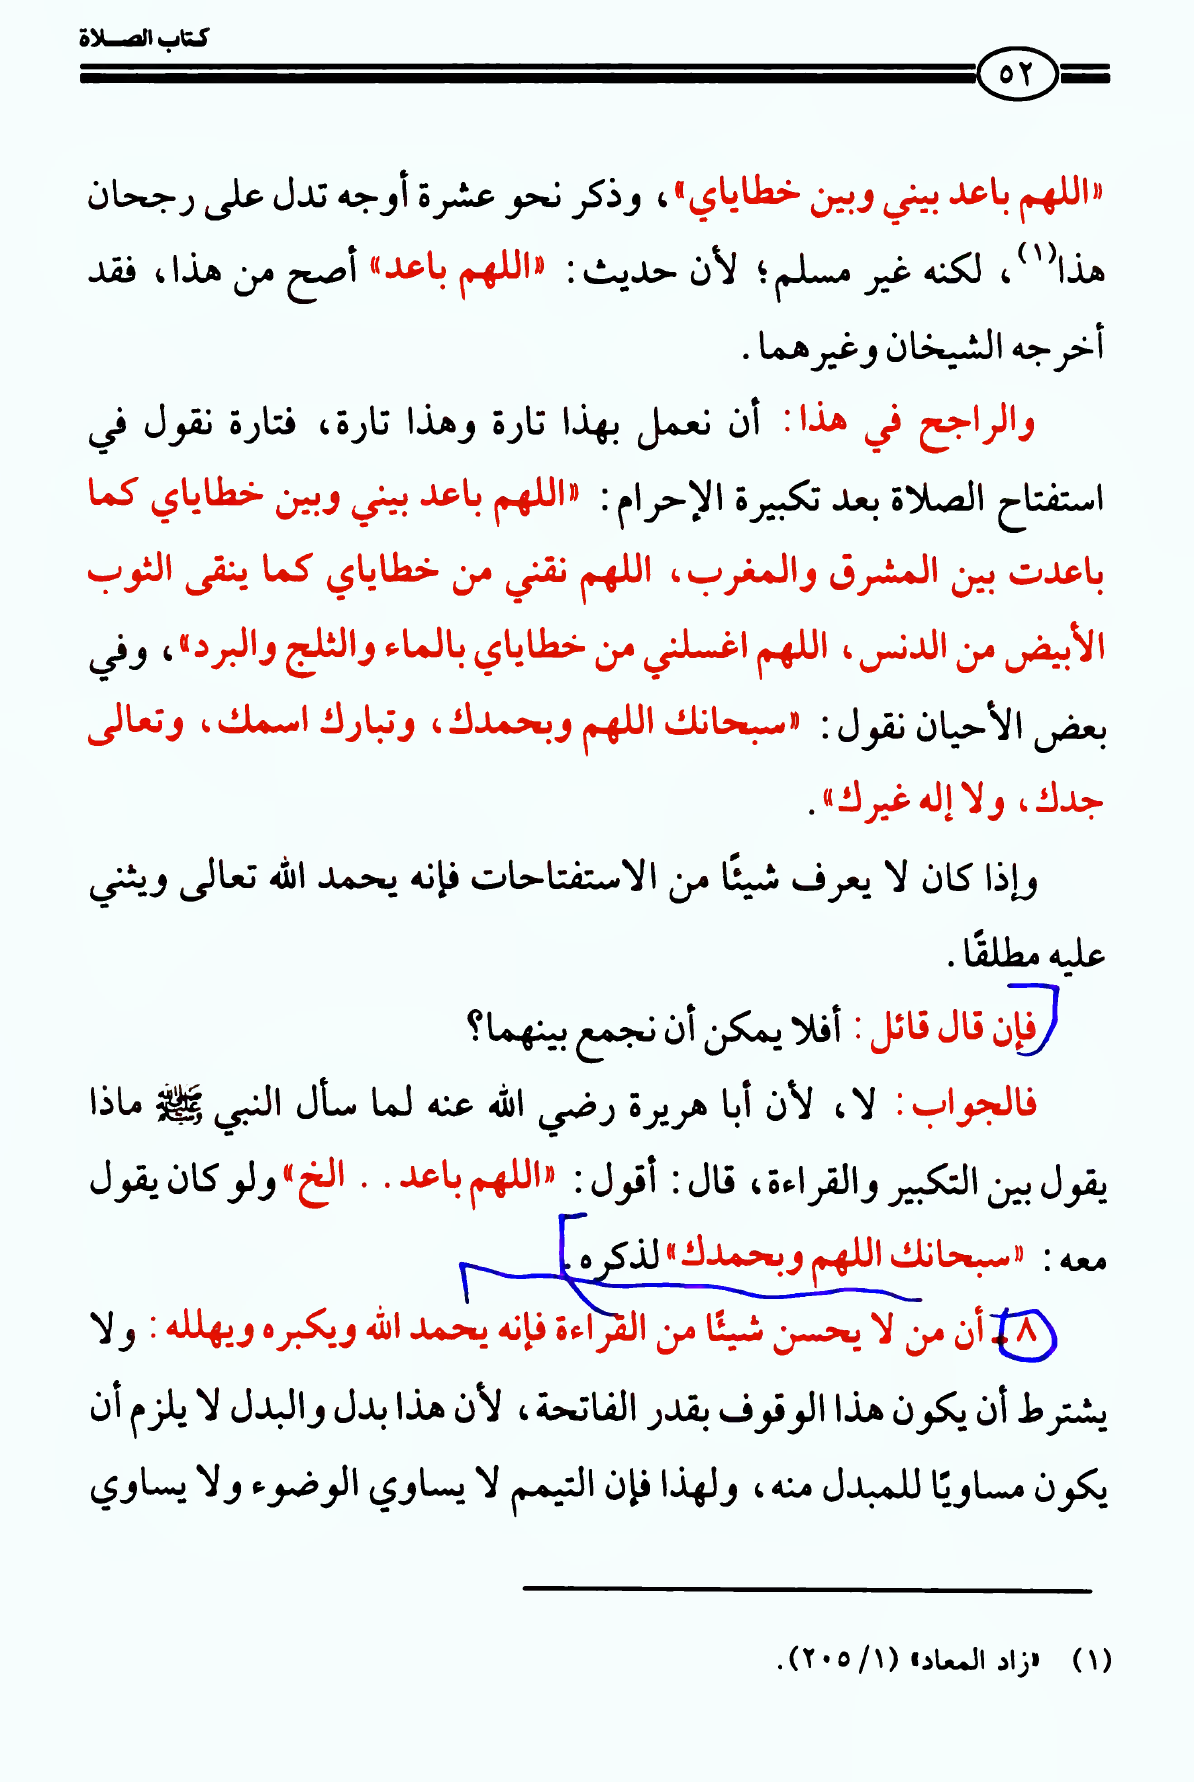 كتاب الصلاة
٥٢
«اللهم باعد بيني وبين خطاياي»، وذكر نحو عشرة أوجه تدل على رجحان
هذا(١)، لكنه غير مسلم؛ لأن حديث: «اللهم باعد» أصح من هذا، فقد
أخرجه الشيخان وغيرهما.
والراجح في هذا: أن نعمل بهذا تارة وهذا تارة، فتارة نقول في
استفتاح الصلاة بعد تكبيرة الإحرام: «اللهم باعد بيني وبين خطاياي كما
باعدت بين المشرق والمغرب، اللهم نقني من خطاياي كما ينقى الثوب
الأبيض من الدنس، اللهم اغسلني من خطاياي بالماء والثلج والبرد»، وفي
بعض الأحيان نقول: «سبحانك اللهم وبحمدك، وتبارك اسمك، وتعالى
جدك، ولا إله غيرك».
وإذا كان لا يعرف شيئًا من الاستفتاحات فإنه يحمد الله تعالى ويثني
عليه مطلقًا.
فإن قال قائل: أفلا يمكن أن نجمع بينهما؟
فالجواب: لا، لأن أبا هريرة رضي الله عنه لما سأل النبي ﷺ ماذا
يقول بين التكبير والقراءة، قال: أقول: «اللهم باعد.. الخ» ولو كان يقول
معه: «سبحانك اللهم وبحمدك» لذكره.
٨ـ أن من لا يحسن شيئًا من القراءة فإنه يحمد الله ويكبره ويهلله: ولا
يشترط أن يكون هذا الوقوف بقدر الفاتحة، لأن هذا بدل والبدل لا يلزم أن
يكون مساويًا للمبدل منه، ولهذا فإن التيمم لا يساوي الوضوء ولا يساوي
(١) «زاد المعاد» (١/ ٢٠٥).